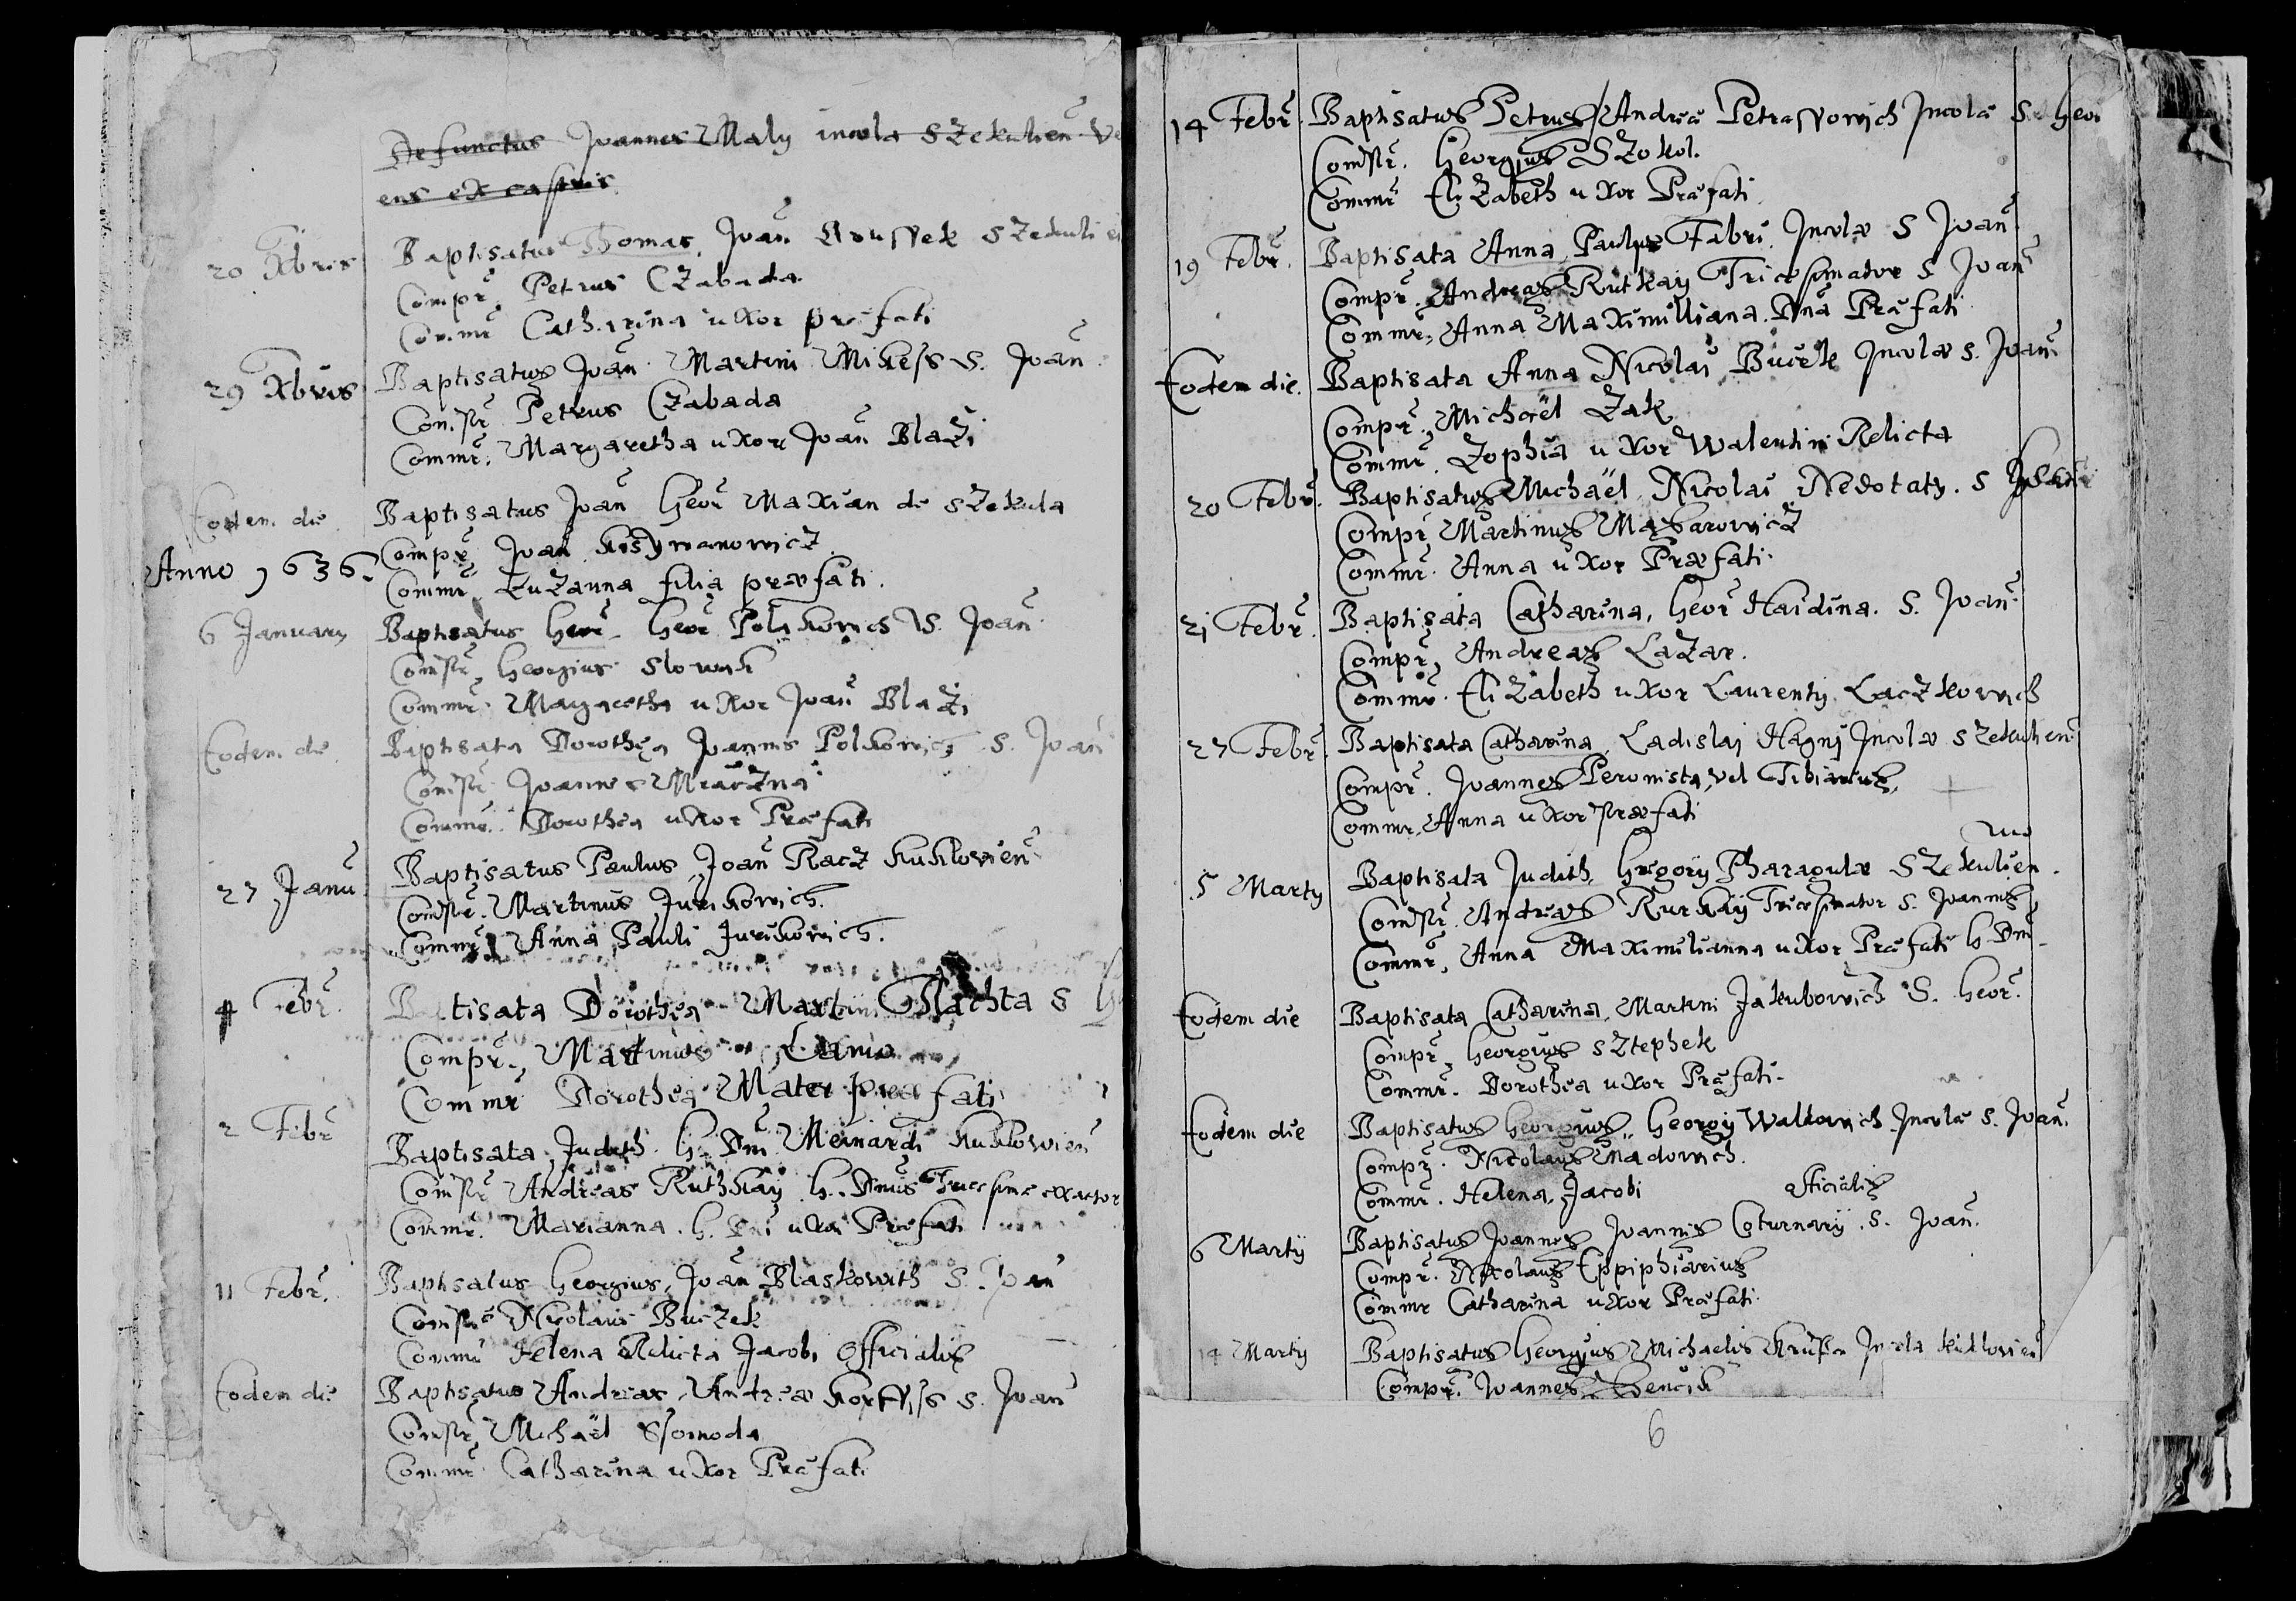 Defunctus Joannes Maly incola Szekulien. Ve
ens ex castris
20 Xbris Baptisatus Thomas, Joañ Krussek Szekuli
Compr̃, Petrus Czabada
Commr̃ Catharina uxor præfati
29 Xbris Baptisatus Joañ Martini Mikess S. Joañ
Compr̃ Petrus Czabada
Commr̃. Margaretha uxor Joañ Blazi
Eodem die Baptisatus Joañ Geor̃ Maxian de Szekula
Compr̃ Joañ
Anno 1636. Commr̃ Zuzanna filia præfati.
6 Januarij Baptisatus Geor̃ Geor̃ Polakowich S. Joañ
Compr̃, Georgius Slowak
Commr̃. Margaretha uxor Joañ Blazi
Eodem die Baptisata Dorothea Joannis Polkowich S. Joañ
Compr̃ Joannes Mraczna
Commr̃. Dorothea uxor Præfati
27 Janu Baptisatus Paulus, Joañ Racz Kuklovien
Compr̃. Martinus Jurikowich.
Commr̃ Anna Pauli Jurikowich.
4 Febr̃. Baptisata Dorothea Martini Plachta S
Compr̃, Martinus
Commr̃ Dorothea Mater præfati
2 Febr̃ Baptisata Judith G. Dni Meinardi Kuklovien
Compr̃ Andreas Ruthkay G. Dnus Tricesime exactor
Commr̃. Marianna G. Dni uxor Præfati
11 Febr̃. Baptisatus Georgius, Joañ Blaskowith S. Joañ
Compr̃ Nicolaus Buczek
Commr̃ Helena Relicta Jacobi Officialis
Eodem die Baptisatus Andreas, Andreæ S. Joañ
Compr̃, Michaël Ssomoda
Commr̃ Catharina uxor Præfati
14 Febr̃. Baptisatus Petrus Andreæ Petrassowich Incolæ S. Geor
Compr̃. Georgius Szokol.
Commr̃ Elizabeth uxor Præfati
19 Febr̃. Baptisata Anna, Paulus Fabri, Incolæ S Joañ
Compr̃. Andreas Rutkay Tricesimator S Joañ
Commr̃, Anna Maximilliana. Dnã Præfati
Eodem die. Baptisata Anna Nicolai Bucek Incolæ S. Joañ
Compr̃, Michaël Zak
Commr̃. Zophia uxor Walentini Relicta
20 Febr̃. Baptisatus Michaël Nicolai Nedotaty. S
Compr̃ Martinus Makarowicz
Commr̃. Anna uxor Præfati.
21 Febr̃. Baptisata Catharina, Geor̃ Haidina. S. Joañ
Compr̃, Andreas Lazar.
Commr̃. Elizabeth uxor Laurentij Laczkowich
27 Febr̃. Baptisata Catharina Ladislai Hagny Incolæ Szekulien
Compr̃. Joannes Peronista, vel Tibiarius,
Commr̃. Anna uxor præfati
5 Martij Baptisata Judith, Gregorij Pharagulæ Szekulien.
Compr̃. Andreas Rutkay Tricesimator S. Joannis
Commr̃, Anna Maximilianna uxor Præfati G. Dni
Eodem die Baptisata Catharina, Martini Jakubowich S. Geor̃.
Compr̃, Georgius Sztephek
Commr̃. Dorothea uxor Præfati.
Eodem die Baptisatus Georgius, Georgij Walkowich Incolæ S. Joañ.
Compr̃. Nicolaus Madowich.
Commr̃. Helena, Jacobi officialis
6 Martij Baptisatus Joannes Joannis Coturnarij. S. Joañ.
Compr̃. Nicolaus Eppiphiarius
Commr̃ Catharina uxor Præfati
14 Martij Baptisatus Georgius Michaelis Krupa Incola Kuklovien
Compr̃. Joannes
6